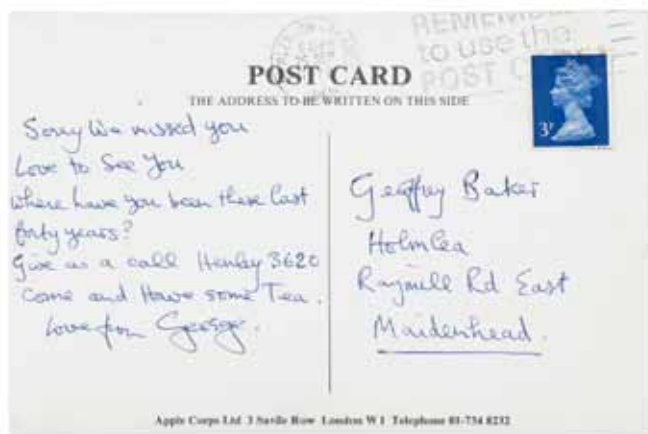 REMEMBER
to use the
POST CODE
POST CARD
THE ADDRESS TO BE WRITTEN ON THIS SIDE
3P
Sorry We missed you
Love to See You
where have you been these last
forty years?
Give us a call Henley 3620
Come and Have some Tea.
Love from George.
Geoffrey Baker
Holmlea
Raymill Rd East
Maidenhead.
Apple Corps Ltd 3 Savile Row London W1 Telephone 01-734 8232